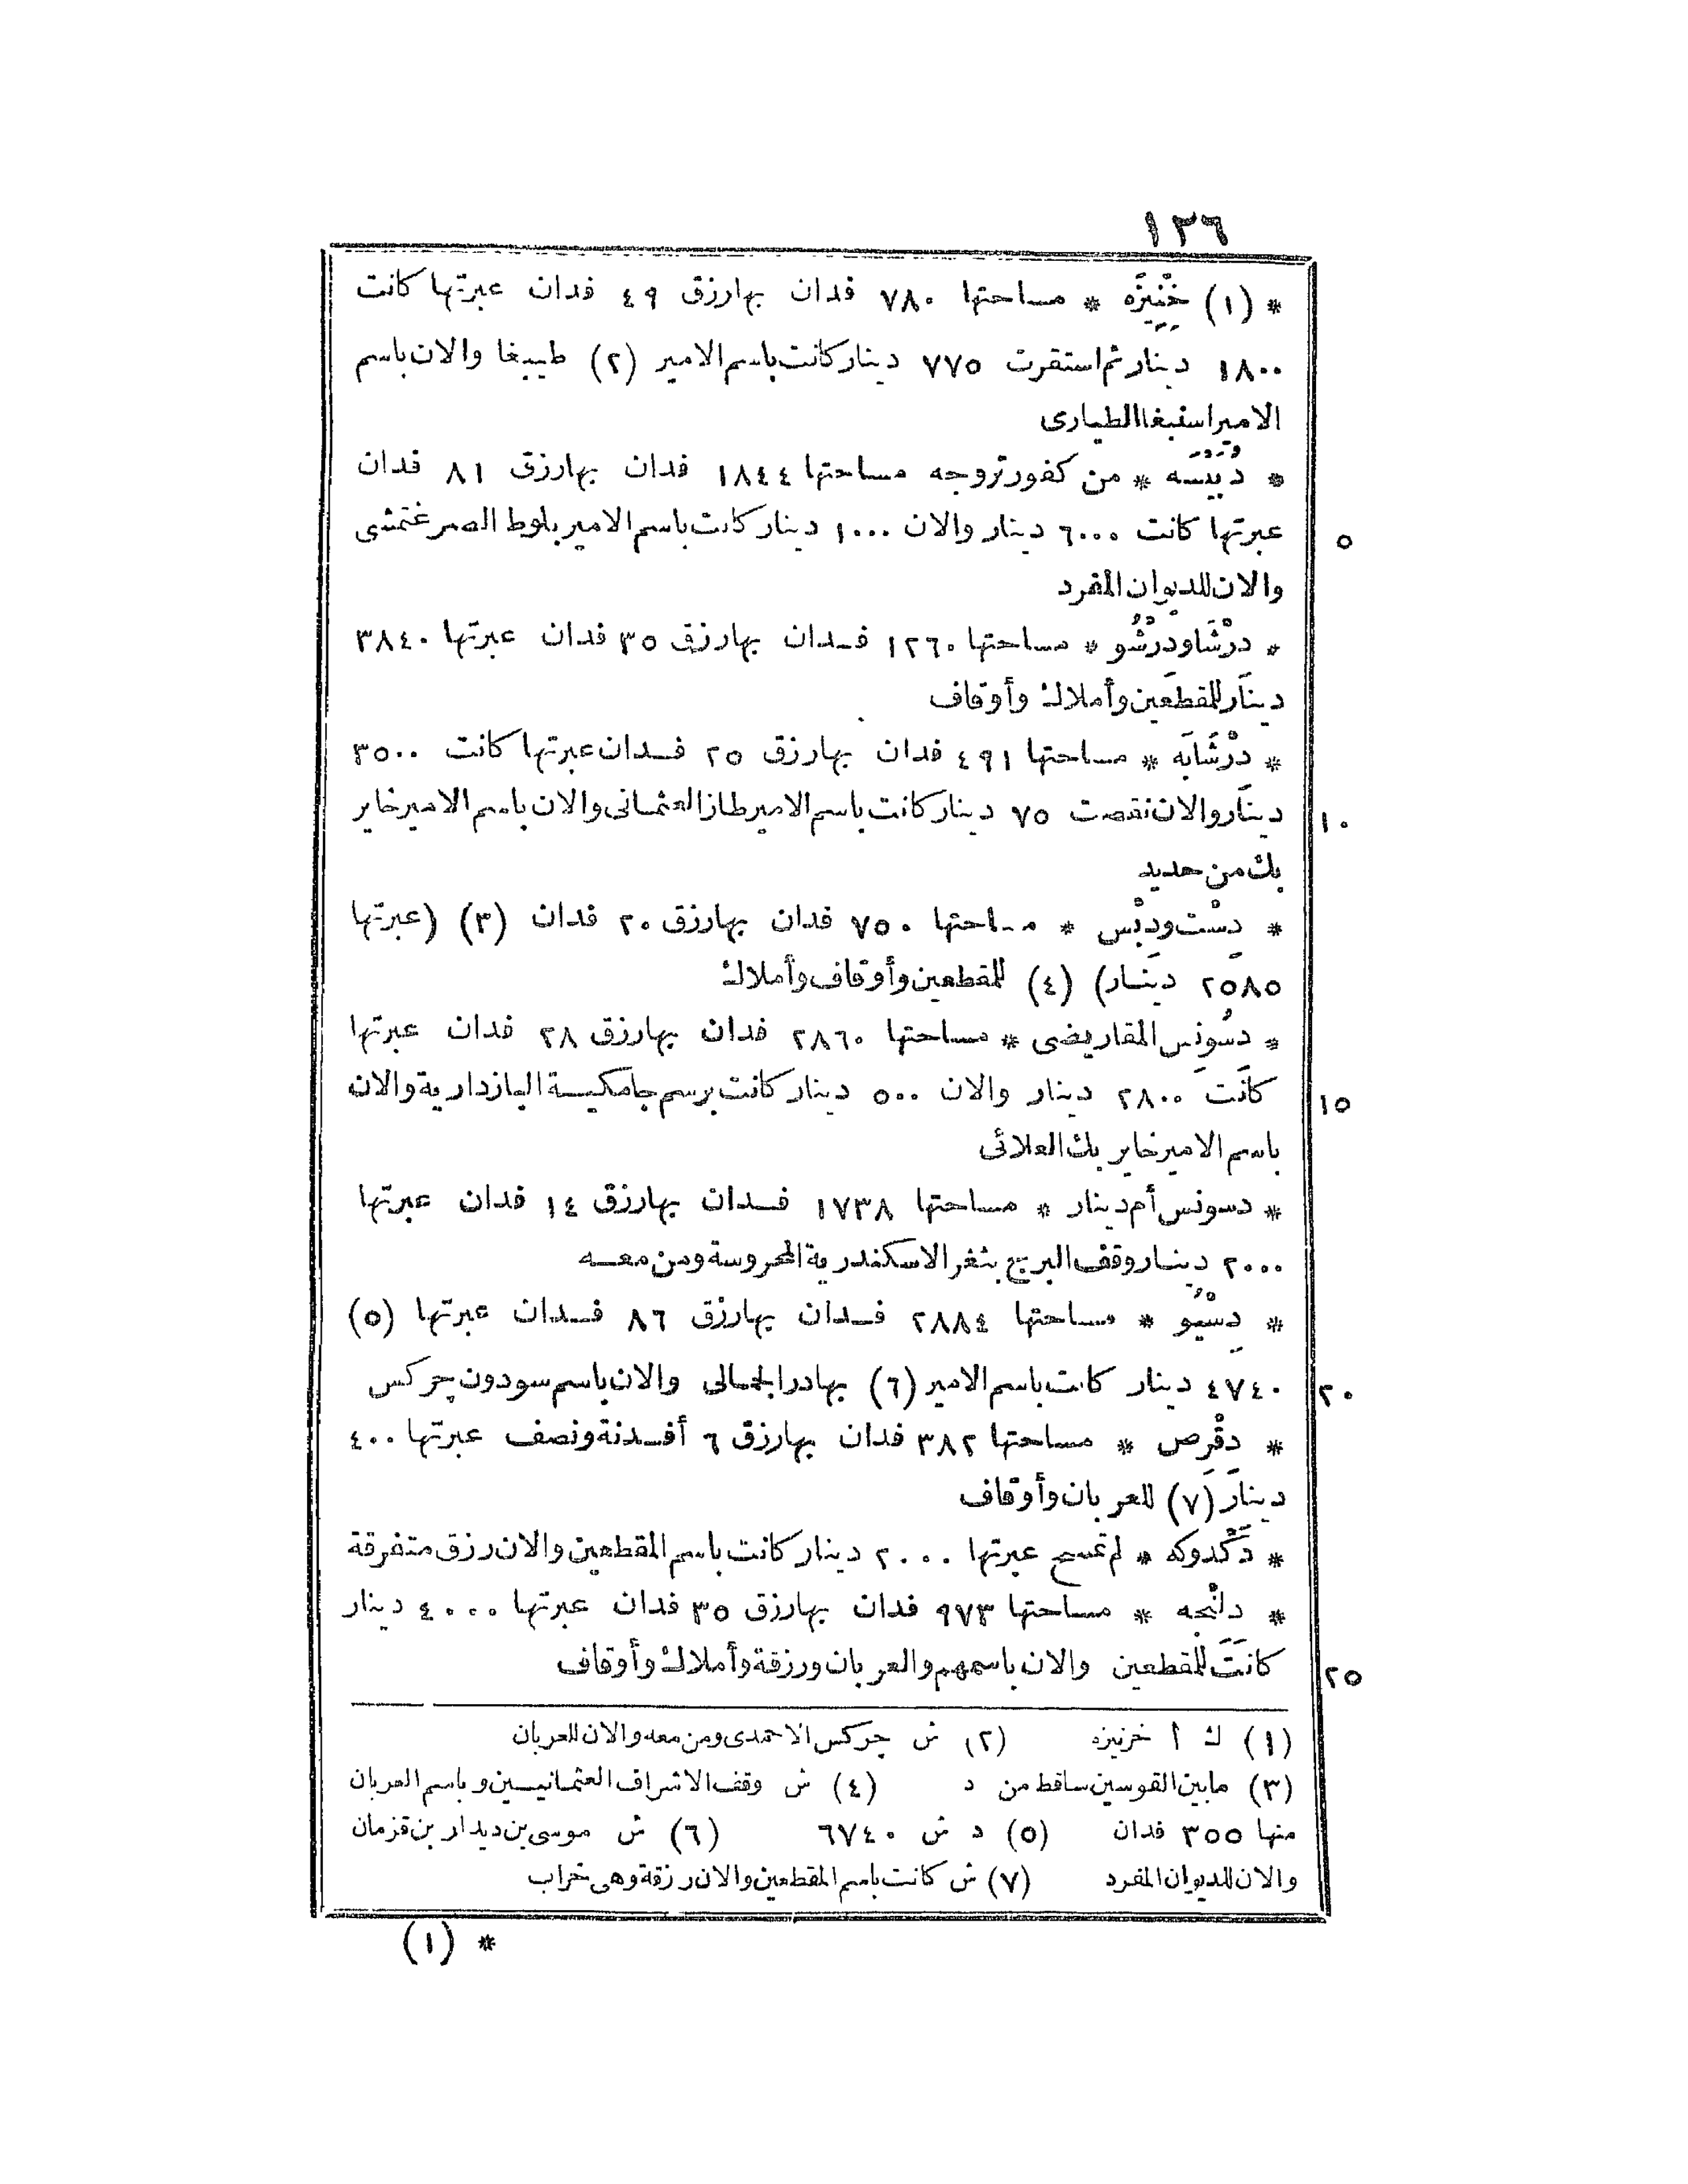 ١٣٦
* (١) خِنِيزَه * مساحتها ٧٨٠ فدان بهارزق ٤٩ فدان عبرتها كانت
١٨٠٠ دينار ثم استقرت ٧٧٥ دينار كانت باسم الامير (٢) طيبغا والان باسم
الامير اسنبغا الطيارى
* دُبَيْسَه * من كفور تروجه مساحتها ١٨٤٤ فدان بهارزق ٨١ فدان
عبرتها كانت ٦٠٠٠ دينار والان ١٠٠٠ دينار كانت باسم الامير بلوط الصرغتمشى ٥
والان للديوان المفرد
* دِرْشَا وَدُرْشُو * مساحتها ١٢٦٠ فدان بهارزق ٣٥ فدان عبرتها ٣٨٤٠
دينار للمقطعين وأملاك وأوقاف
* دَرْشَابَه * مساحتها ٤٩١ فدان بهارزق ٢٥ فدان عبرتها كانت ٣٥٠٠
دينار والان نقصت ٧٥ دينار كانت باسم الامير طاز العثمانى والان باسم الامير خاير ١٠
بك من حديد
* دِسْت ودِبْس * مساحتها ٧٥٠ فدان بهارزق ٢٠ فدان (٣) (عبرتها
٢٥٨٥ دينار) (٤) للمقطعين وأوقاف وأملاك
* دسُونس المقاريضى * مساحتها ٢٨٦٠ فدان بهارزق ٢٨ فدان عبرتها
كانت ٢٨٠٠ دينار والان ٥٠٠ دينار كانت برسم جامكية البازدارية والان ١٥
باسم الامير خاير بك العلائى
* دسونس أم دينار * مساحتها ١٧٣٨ فدان بهارزق ١٤ فدان عبرتها
٢٠٠٠ دينار وقف البريج بثغر الاسكندرية المحروسة ومن معه
* دِسْيُو * مساحتها ٢٨٨٤ فدان بهارزق ٨٦ فدان عبرتها (٥)
٤٧٤٠ دينار كانت باسم الامير (٦) بهادر الجمالى والان باسم سودون جركس ٢٠
* دقْرص * مساحتها ٣٨٢ فدان بهارزق ٦ أفدنة ونصف عبرتها ٤٠٠
دينار (٧) للعربان وأوقاف
* دَكْدوكه * لم تمسح عبرتها ٢٠٠٠ دينار كانت باسم المقطعين والان رزق متفرقة
* دلنْجه * مساحتها ٩٧٣ فدان بهارزق ٣٥ فدان عبرتها ٤٠٠٠ دينار
كانت للمقطعين والان باسمهم والعربان ورزقة وأملاك وأوقاف ٢٥
(١) ك أ خرنيزه (٢) ش جركس الاحمدى ومن معه والان للعربان
(٣) مابين القوسين ساقط من د (٤) ش وقف الاشراف العثمانيين وباسم العربان
منها ٣٥٥ فدان (٥) د ش ٦٧٤٠ (٦) ش موسى بن ديدار بن قزمان
والان للديوان المفرد (٧) ش كانت باسم المقطعين والان رزقة وهى خراب
* (١)